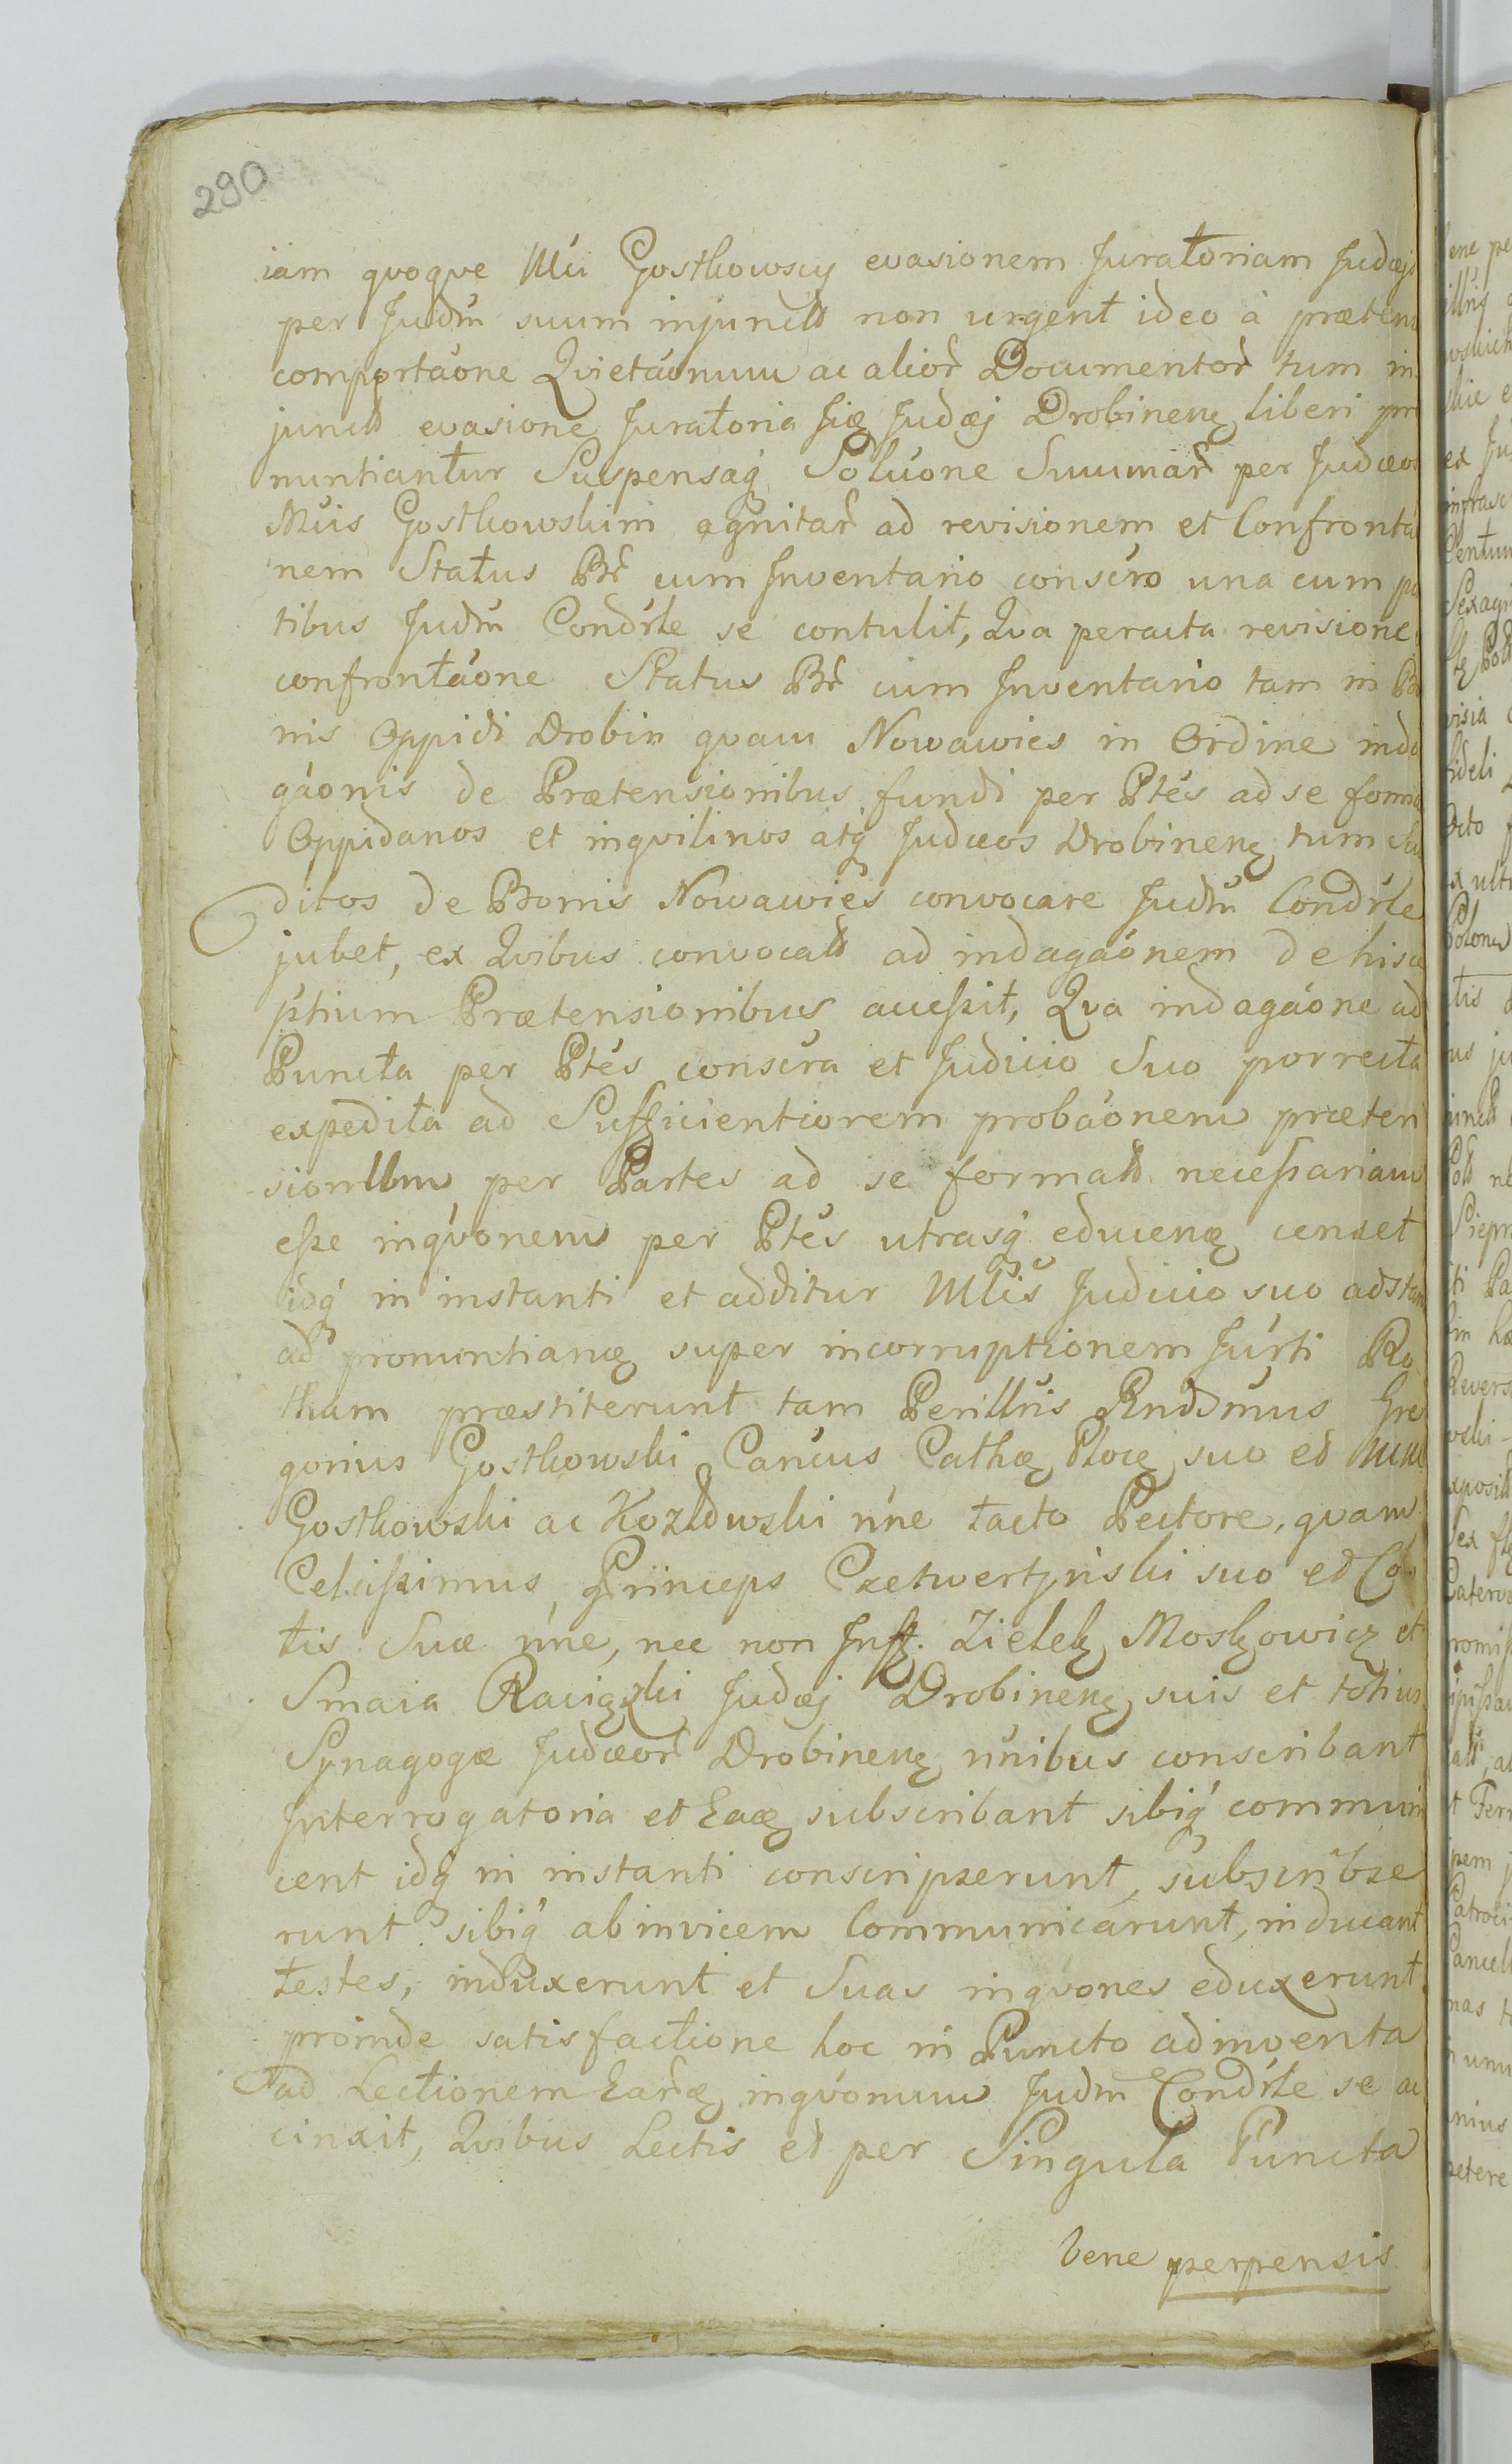 290
iam qvoqve Mci Gostkowscy evasionem Juratoriam Judæis
per Judm suum injunctā non urgent ideo à præten
comportãone Qvietãonum ac alior Documentor tum in
junctā evasione Juratoria Judæj Drobinenę liberi pro
nuntiantur Suspensaq Solũone Summar per Judæos
Mcis Gostkowskim agnitar ad revisionem et Confrontã
nem Status Br cum Inventario conscro una cum par
tibus Judm Condrle se contulit, Qva peracta revisione
confrontãone Status Br cum Inventario tam in Bo
nis Oppidi Drobin qvam Nowawies in Ordine inda
gãonis de Prætensionibus fundi per Ptes ad se forma
Oppidanos et inqvilinos atq Judæos Drobinenę tum Sub
ditos de Bonis Nowawies convocare Judm Condrle
jubet, ex Qvibus convocatā ad indagãonem de hisce
ptium Prætensionibus accessit, Qva indagãone ad
Puncta per Ptes conscra et Judicio Suo porrecta
expedita ad Sufficientiorem probãonem præten
sionum per Partes ad se formatā necessariam
esse inqvonem per Ptes utrasq educenę censet
idq in instanti et additur Mlis Judicio suo adstan
ad pronuntianę super incorruptionem Jurti Ro
tham præstiterunt tam Perillris Rndsmus Gre
gorius Gostkowski Cancus Cathę Plocę suo et Mcm
Gostkowski ac Kozłowski nne tacto Pectore, qvam
Celsissimus Princeps Czetwertynski suo et Co
tis Suæ nne, nec non Inff. Zielek Moszkowicz et
Smaia Raciązki Judæj Drobinenę suis et totius
Synagogæ Judæor Drobinenę nnibus conscribant
Interrogatoria et Eaę subscribant sibiq communi
cent idq in instanti conscripserunt, subscribse
runt sibiq ab invicem Communicarunt, inducant
testes, induxerunt et Suas inqvones eduxerunt
proinde satisfactione hoc in Puncto adinventa
ad Lectionem Earę inqvonum Judm Condrle se ac
cinxit, Qvibus Lectis et per Singula Puncta
bene perpensis